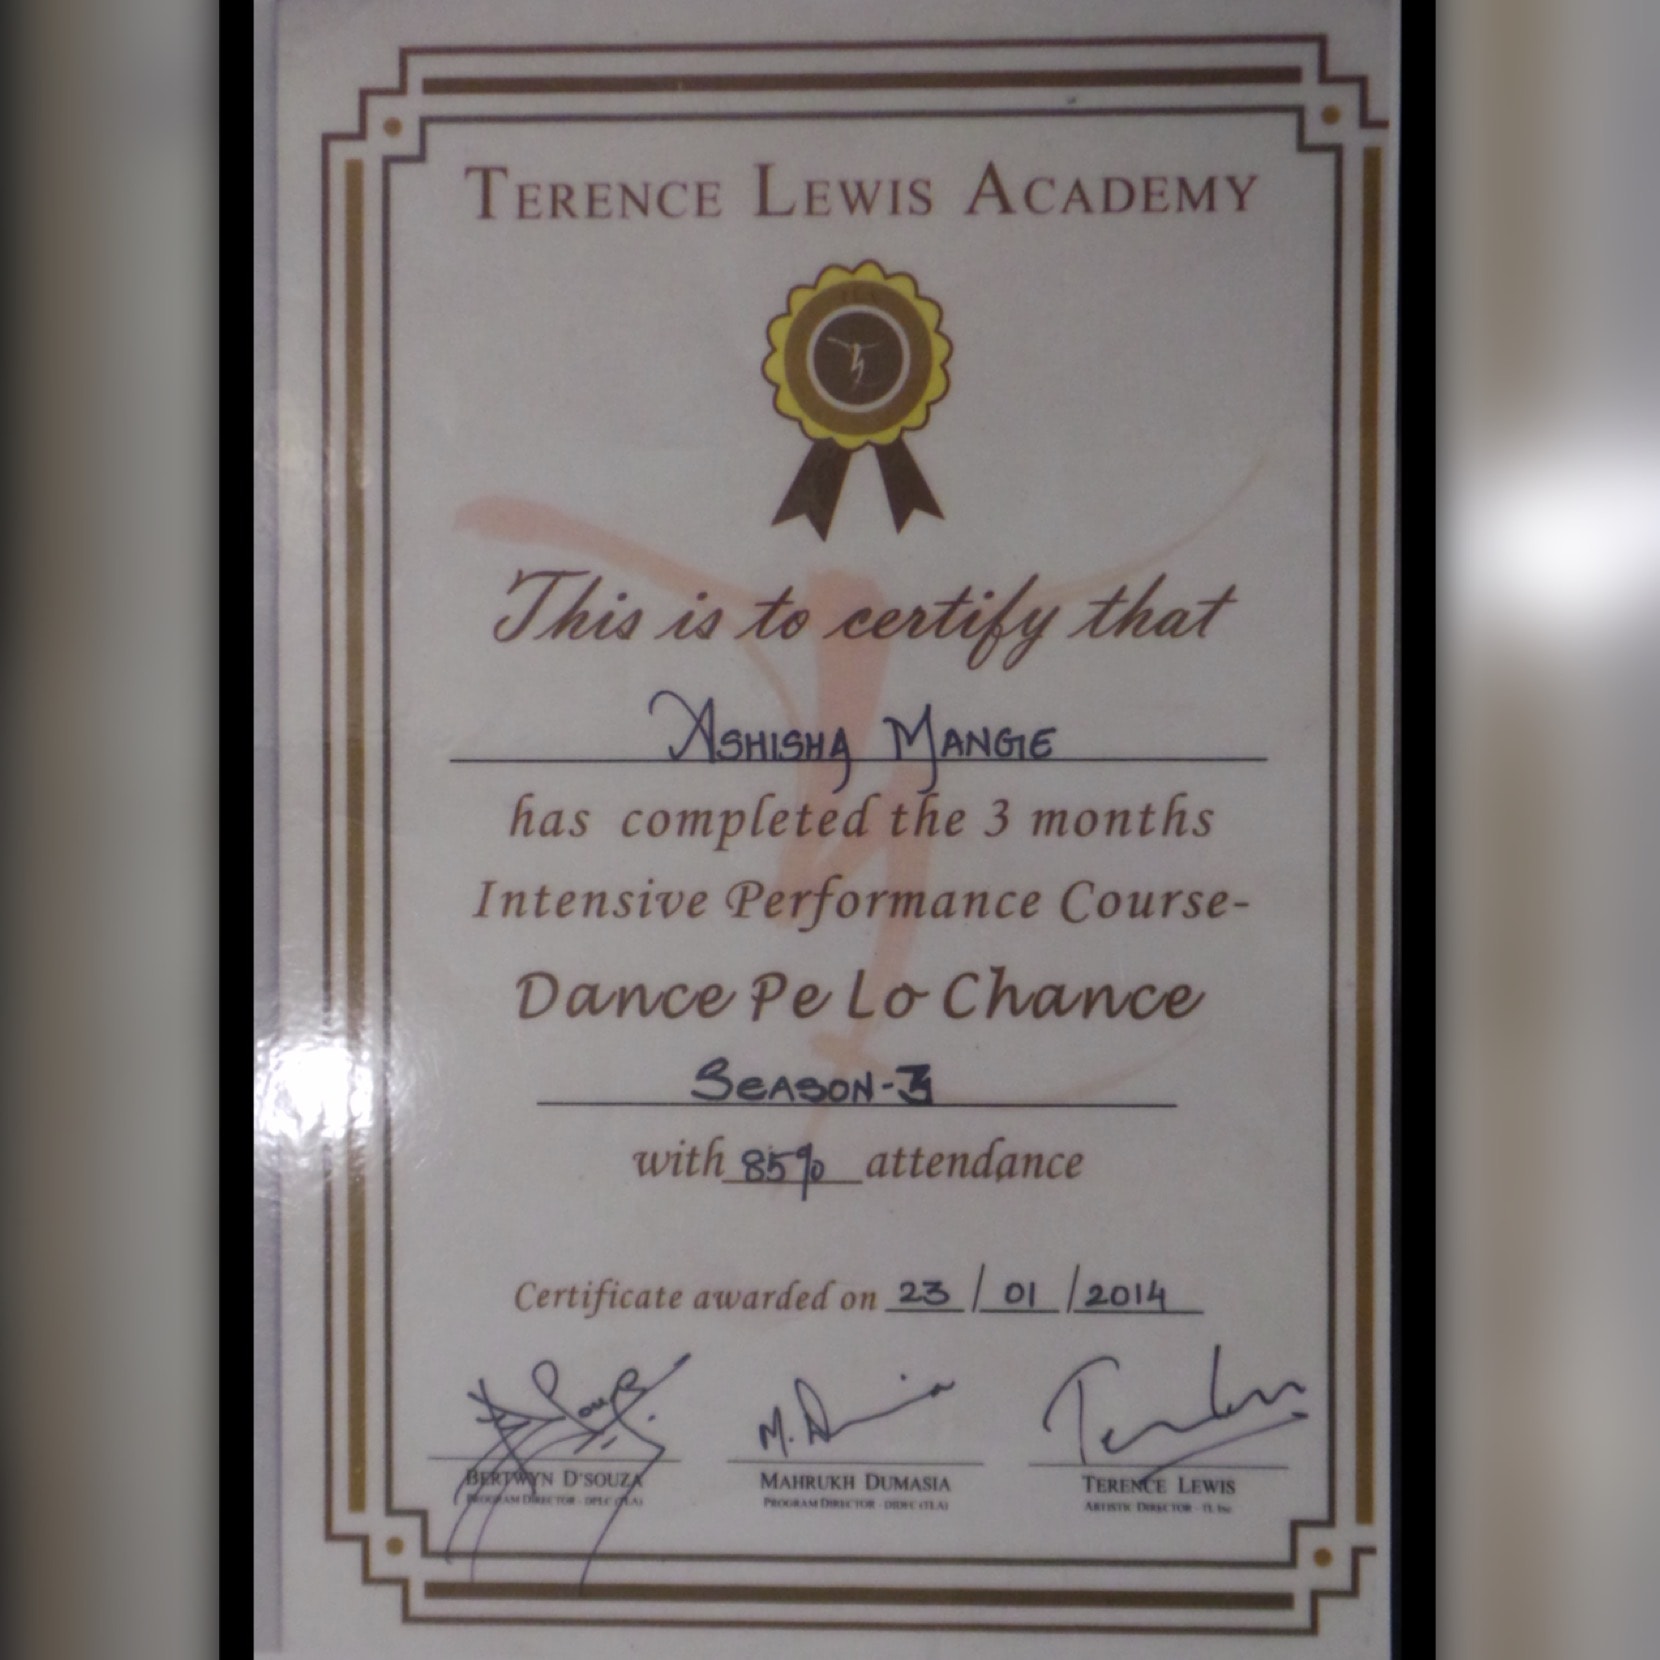 TERENCE LEWIS ACADEMY
This is to certify that
ASHISHA MANGE
has completed the 3 months
Intensive Performance Course-
Dance Pe Lo Chance
SEASON-3
with 85% attendance
Certificate awarded on 23 / 01 / 2014
M. D
BERTWYN D'SOUZA MAHRUKH DUMASIA TERENCE LEWIS
PROGRAM DIRECTOR - DPLC (TLA) PROGRAM DIRECTOR - (TLA) ARTISTIC DIRECTOR - TL Inc